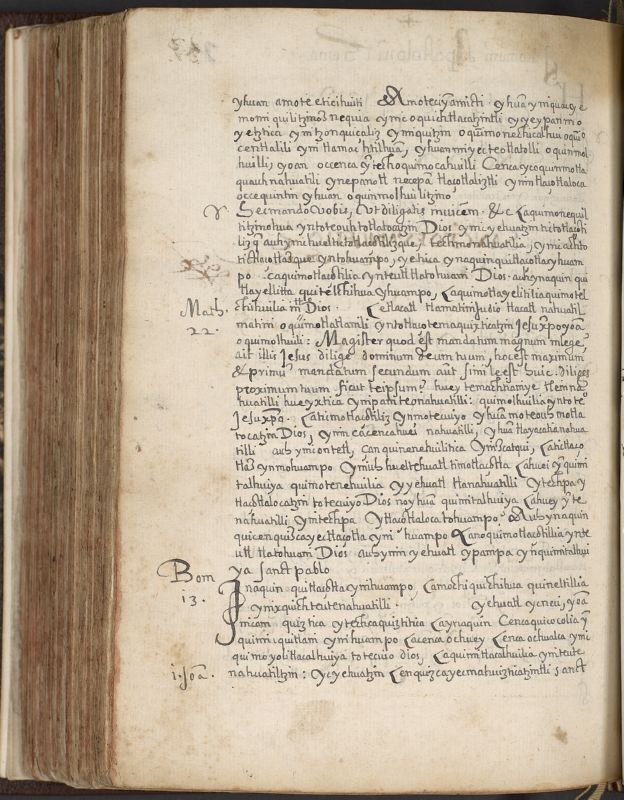 yhuan amote eticihuiti Amotecuyamicti yhuā yniquac y e
momiquilitzinos nequia ynic oquichtlacahzintli yyeypanmo
yetztica ynitzonquicaliz yniquitzin oquīmo nechicalhui oquī
centlalili ynitlamachtilhuā, yhuan miyec teotlatolli oquinmol
huilli, yoan occenca ȳ techoquimocahuilli Cenca yeoquinmotla
quauhnahuatili ynepanotl necepā tlaçotlaliztli ynin tlaçotlaloca
occequintin yhuan oquinmolhuilitzino
Hec mando vobis, Vt diligatis invicem. &c Caquimonequil
titzinohua ynto teouh totlatocatzin Dios ynic yehuatzin tictotlaçoti
lizq̄ auh ynic huel tictotlaçotilizque, techmonahuatilia, ynic achto
tictlaçotlazque yntohuampo, yehica ynaquin quitlaçotla yhuam
po caquimotlaçotilia ynteutl tlatohuani Dios. auh ynaquin qui
tlayellitta quitelchihua yhuampo, Caquimotlayelitilia quimotel
chihuilia in Dios. Cetlacatl tlamatini judio tlacatl nahuatil
Math. 22. matini oquimotlatlanili yntotlaçotemaquixticatzin Jesu xp̄o yoā
oquimolhuili: Magister quod est mandatum magnum in lege,
ait illis Jesus dilige dominum deum tuum, hoc est maximum
& primū mandatum secundum aūt simile est huic. diliges
proximum tuum sicut teipsum, huey temachtiamye tlein na
huatilli hueyxtica ynipan teonahuatilli: quimolhuilia ynto te.º
Jesu xp̄o. Catimotlaçotiliz ynmotecuiyo yhuā moteouh motla
tocatzin Dios, ynin cacencahuei nahuatilli, yhuā tlayacatianohua
tilli auh ynic ontetl, can quinenehuilitica Ymiscatqui, Catictlaço
tlaz ynmohuampo Ymiuh huel tehuatl timotlaçotla Cahuei ȳ quimi
talhuiya quimotenehuilia yyehuatl tlanahuatilli Ytechpa y
tlaçotlalocatzin totecuiyo Dios noyhuā quimitalhuiya Cahuey ȳ te
nahuatilli ymtechpa ytlaçotlaloca tohuampo Auh ynaquin
quicenquizcayectlaçotla yni huampo Canoquimotlaçotillia ynte
utl tlatohuani Dios auh ynin yehuatl ypampa yn quimitalhui
ya sanct pablo
Rom 13. Inaquin quitlaçotla ynihuampo, Camochi quichihua quineltillia
yn ixquich teutenahuatilli. yehuatl ycnevi, yoā
nican quiztica ytechca quiztitica Cayn aquin Cencaquicocolia ȳ
quimiquitlani ynihuampo cacenca ohuey Cenca ochualca ynic
quimoyolitlacalhuiya totecuio dios, Caquimitlacalhuilia yniteute
i. Joā. nahuatiltzin: ycyehuatzin Cenquizcayecmahuiztlicatzintli sanct